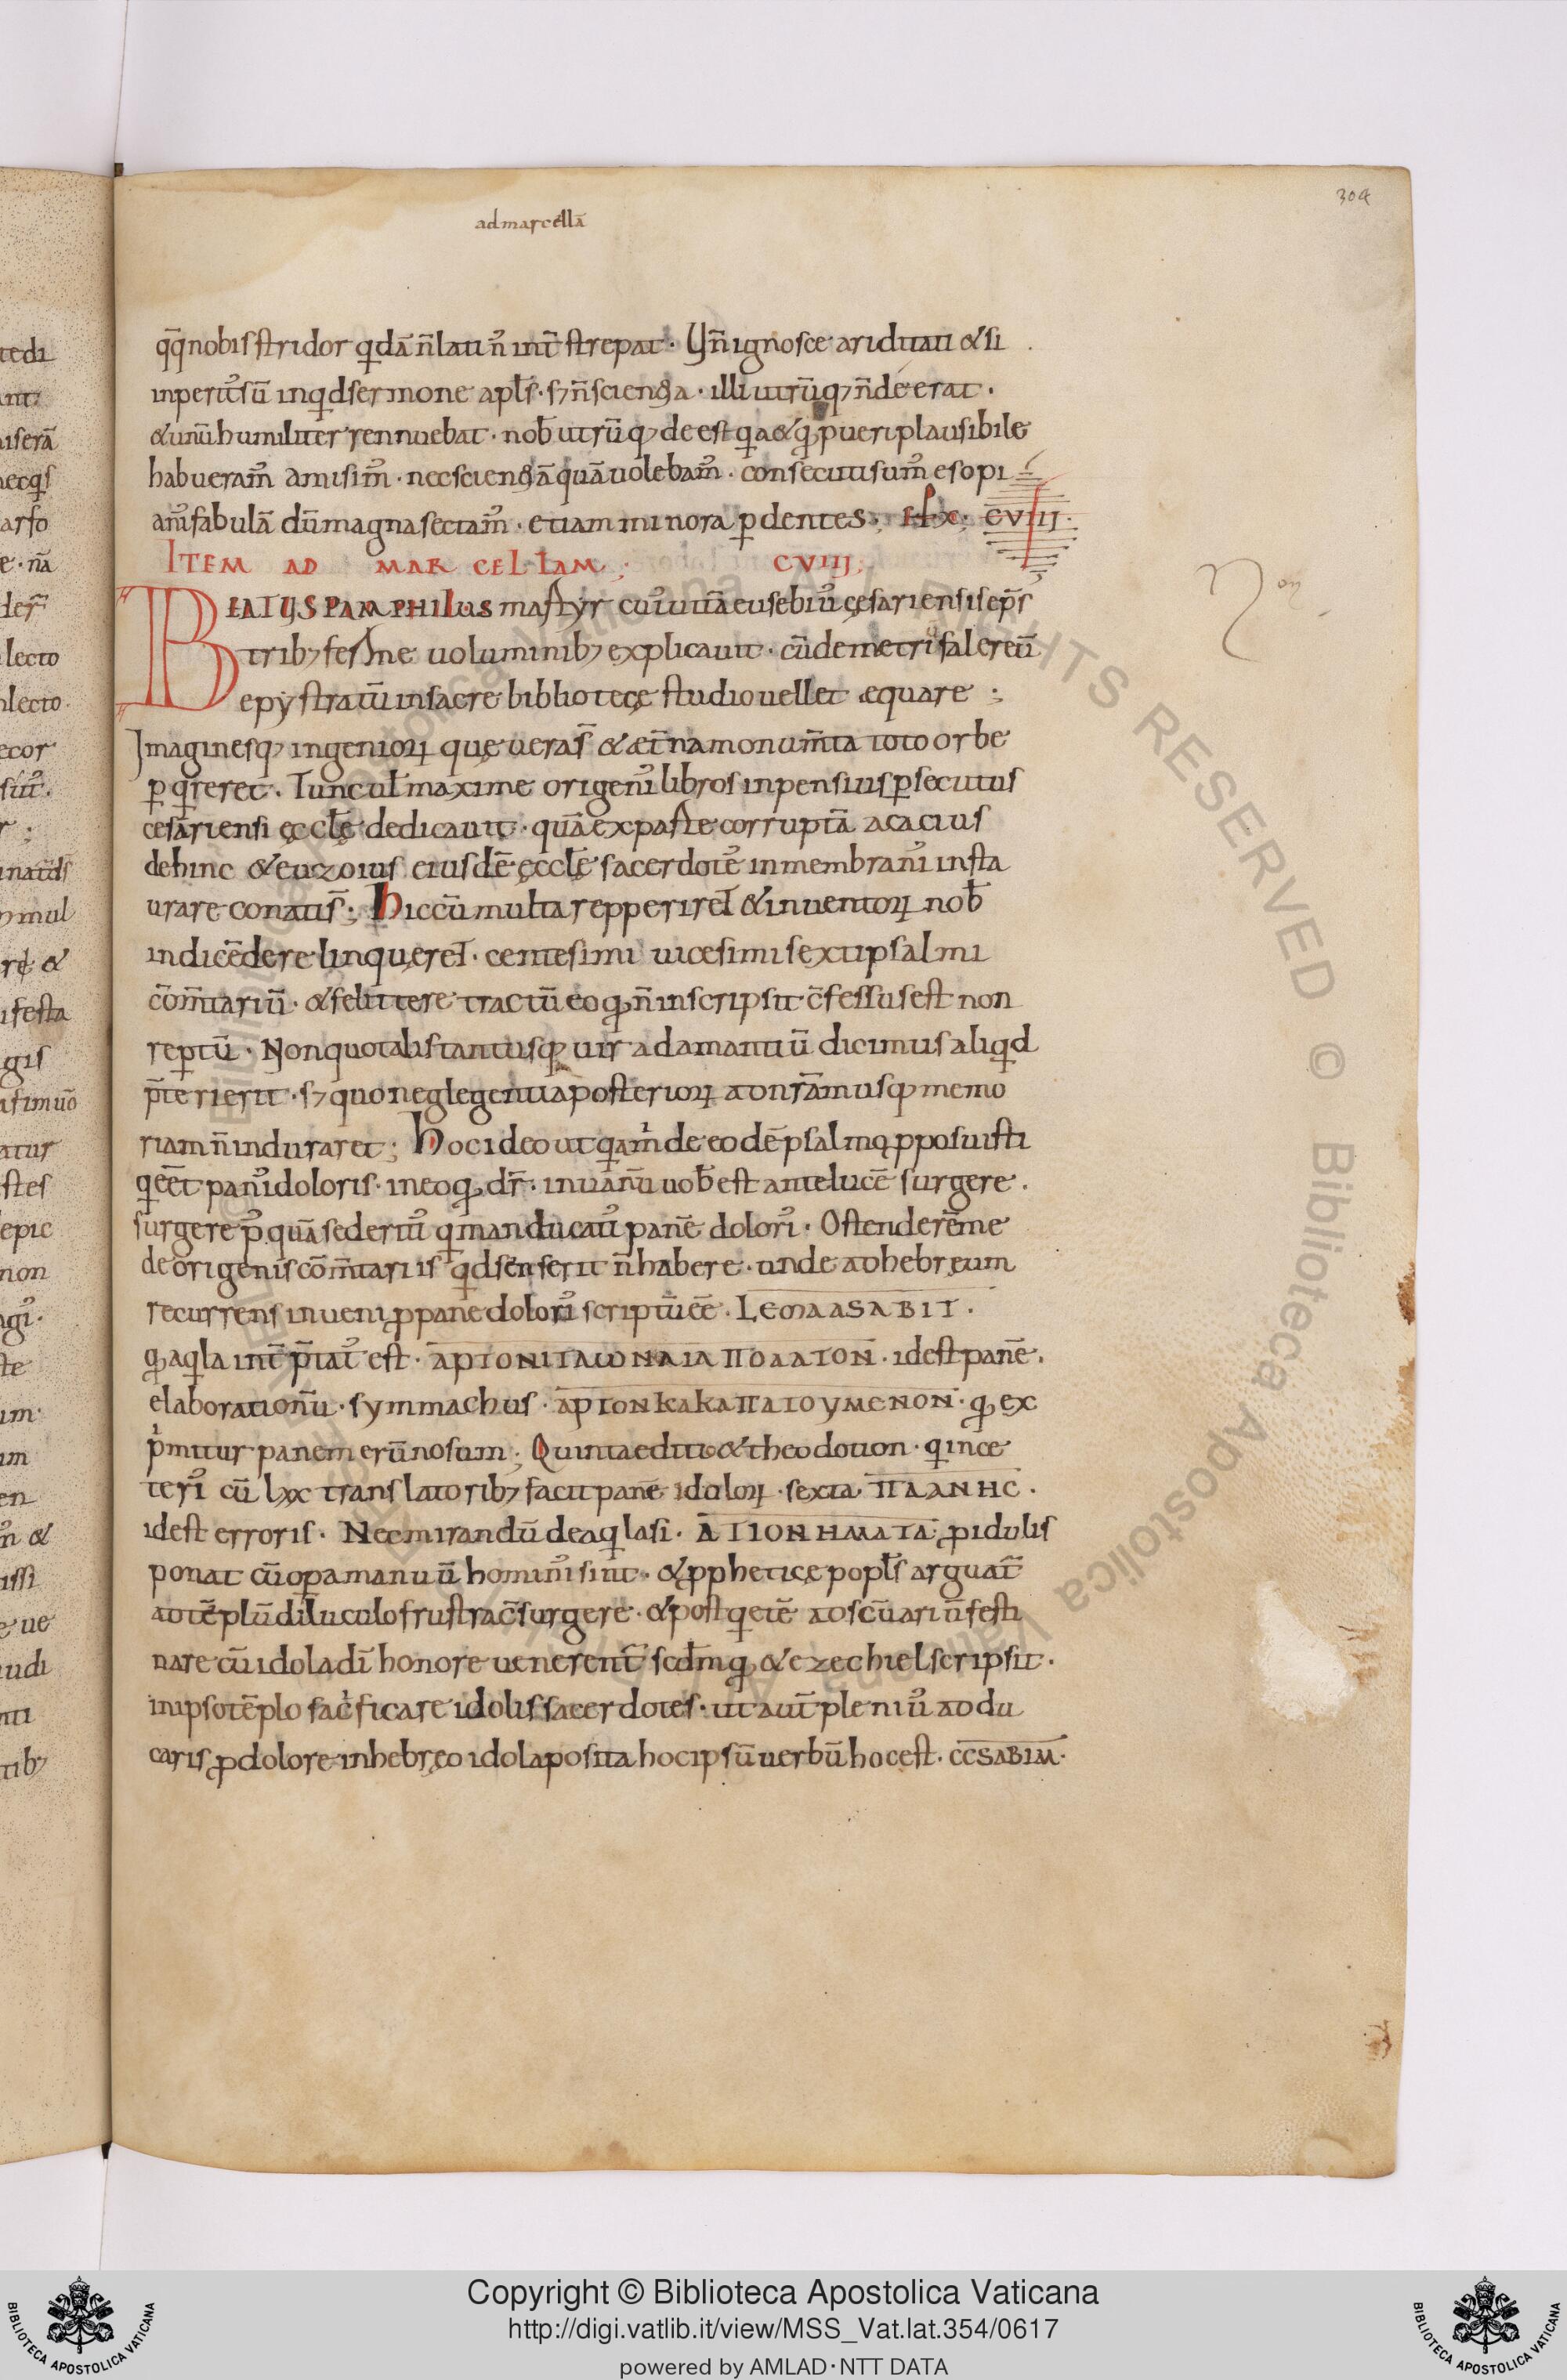 304
admarcellā
qq̄ nobis stridor qdā n̄ latin᷒ int̄ strepat · Vn̄ ignosce ariditati & si
inperit᷒ sū inqd sermone apl̄s · s; n̄ scientia · illi utrūq; n̄ deerat ·
& unū humiliter rennuebat · nob̄ utrūq; deest qa & qđ pueri plausibile
habueram᷒ amisim᷒ · nec scientiā quā volebam᷒ · consecuti sum᷒ esopi
ani᷒ fabulā dū magna sectam᷒ · etiam minora pdentes · Exp · CVIII ·
ITEM AD MARCELLAM ; CVIII ;
BEATUS PAMPHILUS martyr cui᷒ vitā eusebiu᷒ cęsariensis ep̄s
trib; ferme voluminib; explicavit · cū demetriū falereū
epystratū in sacre bibliotecę studio vellet æquare ;
Imaginesq; ingenioꝝ quę veras̄ & æt̄na monum̄ta toto orbe
pqreret · Tunc vel maxime origeni᷒ libros inpensius psecutus
cesariensi ęcclę̄ dedicavit · quā ex parte corruptā acacius
dehinc & euzoius eiusdē ęcclę̄ sacerdote᷒ in membrani᷒ insta
urare conatis̄ · Hic cū multa repperiret & inventoꝝ nob̄
indicē derelinqueret · centesimi vicesimi sexti psalmi
cōm̄tariū · & fe littere tractū eo qđ n̄ inscripsit c̄fessus est non
reptū · Non quo talis tantusq; vir adamantiū dicimus aliqd
p̄terierit · s; quo neglegentia posterioꝝ ad nr̄am usq; memo
riam n̄ induraret ; Hoc ideo ut qa m̍ de eodē psalmo pposuisti
qeēt pani᷒ doloris · in eo qđ dr̄ · in vanū vob̄ est ante lucē surgere ·
surgere p᷒ quā sederiti᷒ q manducati᷒ panē dolori᷒ · Ostenderē me
de origenis cōm̄tariis qd senserit n̄ habere · unde ad hebręum
recurrens inveni p pane dolori᷒ scriptū eē · LEMAASABIT ·
qđ aqla int̄p̄tat᷒ est · ΑΡΤΟΝΙΤΑΩΝΑΙΑΠΟΛΑΤΟΝ · id est panē ·
elaborationū · symmachus · ΑΡΤΟΝΚΑΚΑΠΑΤΟΥΜΕΝΟΝ · qđ ex
p̍mitur panem erūnosum ; Quinta editio & theodotion · q in ce
teri᷒ cū lxx translatorib; facit panē idoloꝝ · sexta ΠΛΑΝΗC ·
id est erroris · Nec mirandū de aqla si · ΑΤΙΟΝΗΜΑΤΑ · p idolis
ponat cū opa manuū homini᷒ sint · & pphetice popl̄s arguat᷒
ad tēplū diluculo frustra c̄surgere · & post qetē ad scūari n̄ festi
nare cū idola dī honore venerent᷒ scd̄m qđ & ezechiel scripsit ·
in ipso tēplo sac̍ficare idolis sacerdotes · ut aut̄ pleniu᷒ ad du
caris p dolore in hebręo idola posita hoc ipsū verbū hoc est · CCSABIM ·
Non
Copyright © Biblioteca Apostolica Vaticana
http://digi.vatlib.it/view/MSS_Vat.lat.354/0617
powered by AMLAD·NTT DATA
BIBLIOTECA APOSTOLICA VATICANA
BIBLIOTECA APOSTOLICA VATICANA